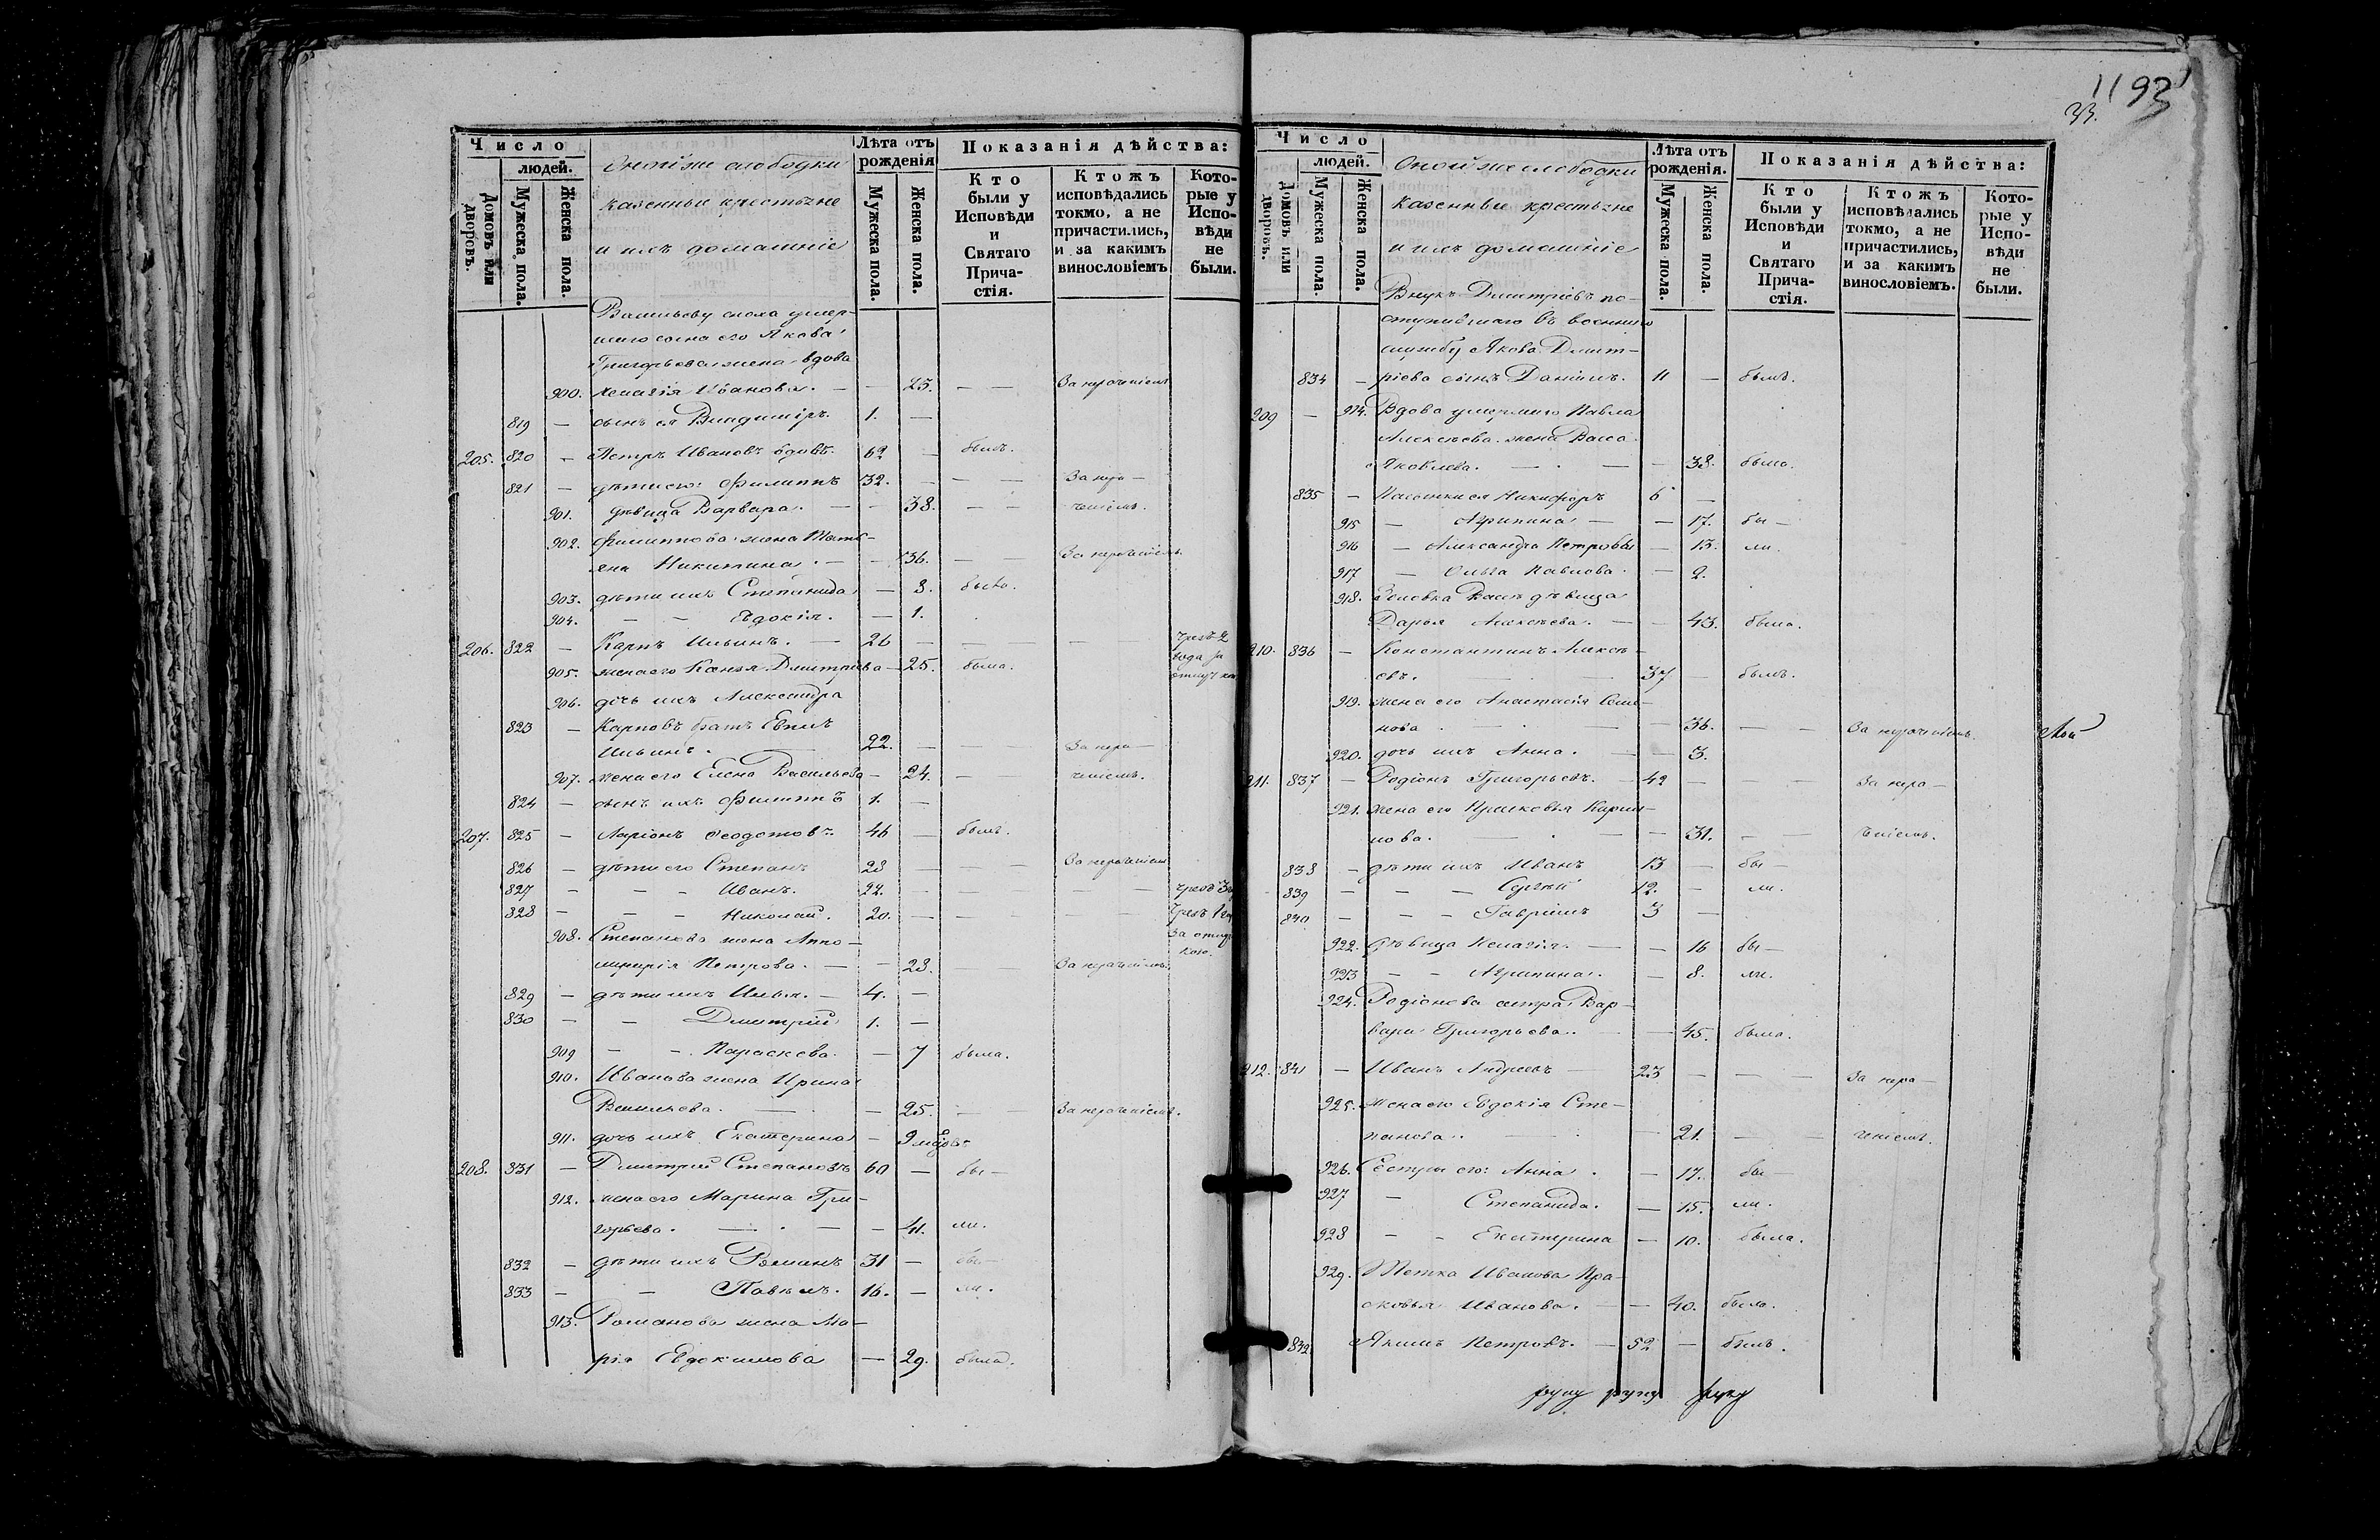 Число
людей.
Домовъ или дворовъ.
Мужеска пола.
Женска пола.
Оной же слободки
казенные крестьяне
и ихъ домашніе
Лѣта отъ рожденія
Мужеска пола.
Женска пола.
Показанія дѣйства:
Кто были у Исповѣди и Святаго Причастія.
Ктожъ исповѣдались токмо, а не причастились, и за какимъ винословіемъ
Которые у Исповѣди не были.
умер-
шаго сына его Якова
Григорьева жена вдова
900. Пелагія Иванова. — — 25. — — За нераченіемъ
819 — сынъ ея Владиміръ. 1. —
205. 820 — Петръ Ивановъ вдовъ. 62 — былъ.
821 — дѣти его: Филиппъ 32. — — — За нера—
901. дѣвица Варвара. — — 38. — — ченіемъ.
902. Филиппова жена Тать-
яна Никитина. — — 36. — — За нераченіемъ.
903. дѣти ихъ Степанида — 8. была.
904. — — Евдокія. — 1.
206. 822 — Карпъ Ильинъ. — 26 — — — чрезъ 2
года за
905. жена его Ксенія Дмитріева — 25. была.
906. дочь ихъ Александра
823 — Карповъ братъ Евѳимъ
Ильинъ. — 22. — — За нера—
907. жена его Елена Васильева — 24. — ченіемъ.
824 — сынъ ихъ Филиппъ 1. —
207. 825 — Ларіонъ Ѳеодотовъ. 46 — былъ.
826 — дѣти его Степанъ 28 — — — За нераченіемъ
827 — — — Иванъ. 22. — — — — чрезъ 3
828 — — — Николай. 20. — — — — чрезъ 1
908. Степанова жена Аппо-
линарія Петрова. — — 28. — — За нераченіемъ.
829 — дѣти ихъ Илья. — 4. —
830 — — Дмитрій 1. —
909 — — Параскева. — 7 была.
910. Иванова жена Ирина
Васильева. — — 25. — — За нераченіемъ.
911. дочь ихъ Екатерина — 9
208. 831 — Дмитрій Степановъ 60 — бы—
912. жена его Марина Гри-
горьева. — . — — 41. ли.
832 — дѣти ихъ Романъ 31 — бы—
833 — — Павелъ. 16. — ли.
913. Романова жена Ма-
рія Евдокимова — 29. была.
1193
Число
людей.
Домовъ или дворовъ.
Мужеска пола.
Женска пола.
Оной же слободки
казенные крестьяне
и ихъ домашніе
Лѣта отъ рожденія.
Мужеска пола.
Женска пола.
Показанія дѣйства:
Кто были у Исповѣди и Святаго Причастія.
Ктожъ исповѣдались токмо, а не причастились, и за какимъ винословіемъ.
Которые у Исповѣди не были.
Внукъ Дмитріевъ по-
ступившаго въ военную
службу Якова Дмит-
834 — ріева сынъ Даніилъ. 11 — былъ.
209 — 914. Вдова умершаго Павла
Алексѣева жена Васса
Яковлева. — . — — 38. была.
835 — Никифоръ 6 —
915 — Агрипина — — 17. бы—
916 — Александра Петровы — 13. ли.
917 — Ольга Павлова. — 2.
918. Золовка Вассы дѣвица
Дарья Алексѣева. — — 43. была.
210. 836 — Константинъ Алексѣ-
евъ. — — 37 — былъ.
919. жена его Анастасія Семе-
нова. — . — — 36. — — За нераченіемъ.
920. дочь ихъ Анна. — — 3.
211. 837 — Родіонъ Григорьевъ. — 42 — — — За нера—
921. жена его Прасковья
— . — — 31. — — ченіемъ.
838 — дѣти ихъ Иванъ 13 — бы—
839 — — — Сергѣй 12. — ли.
840 — — — Гавріилъ 3 —
922. дѣвица Пелагія. — — 16 бы—
923 — — Агрипина. — 8. ли.
924. Родіонова сестра Вар-
вара Григорьева. — — 45. была.
212. 841 — Иванъ Андреевъ — 23 — — — За нера—
925. жена его Евдокія Сте-
панова. — . — 21. — — ченіемъ.
926. Сестры его: Анна. — 17. бы—
927 — Степанида. — 15. ли.
928 — — Екатерина — 10. была.
929. Тетка Иванова Пра-
сковья Иванова. — — 40. была.
842. Якимъ Петровъ. — 52 — былъ.